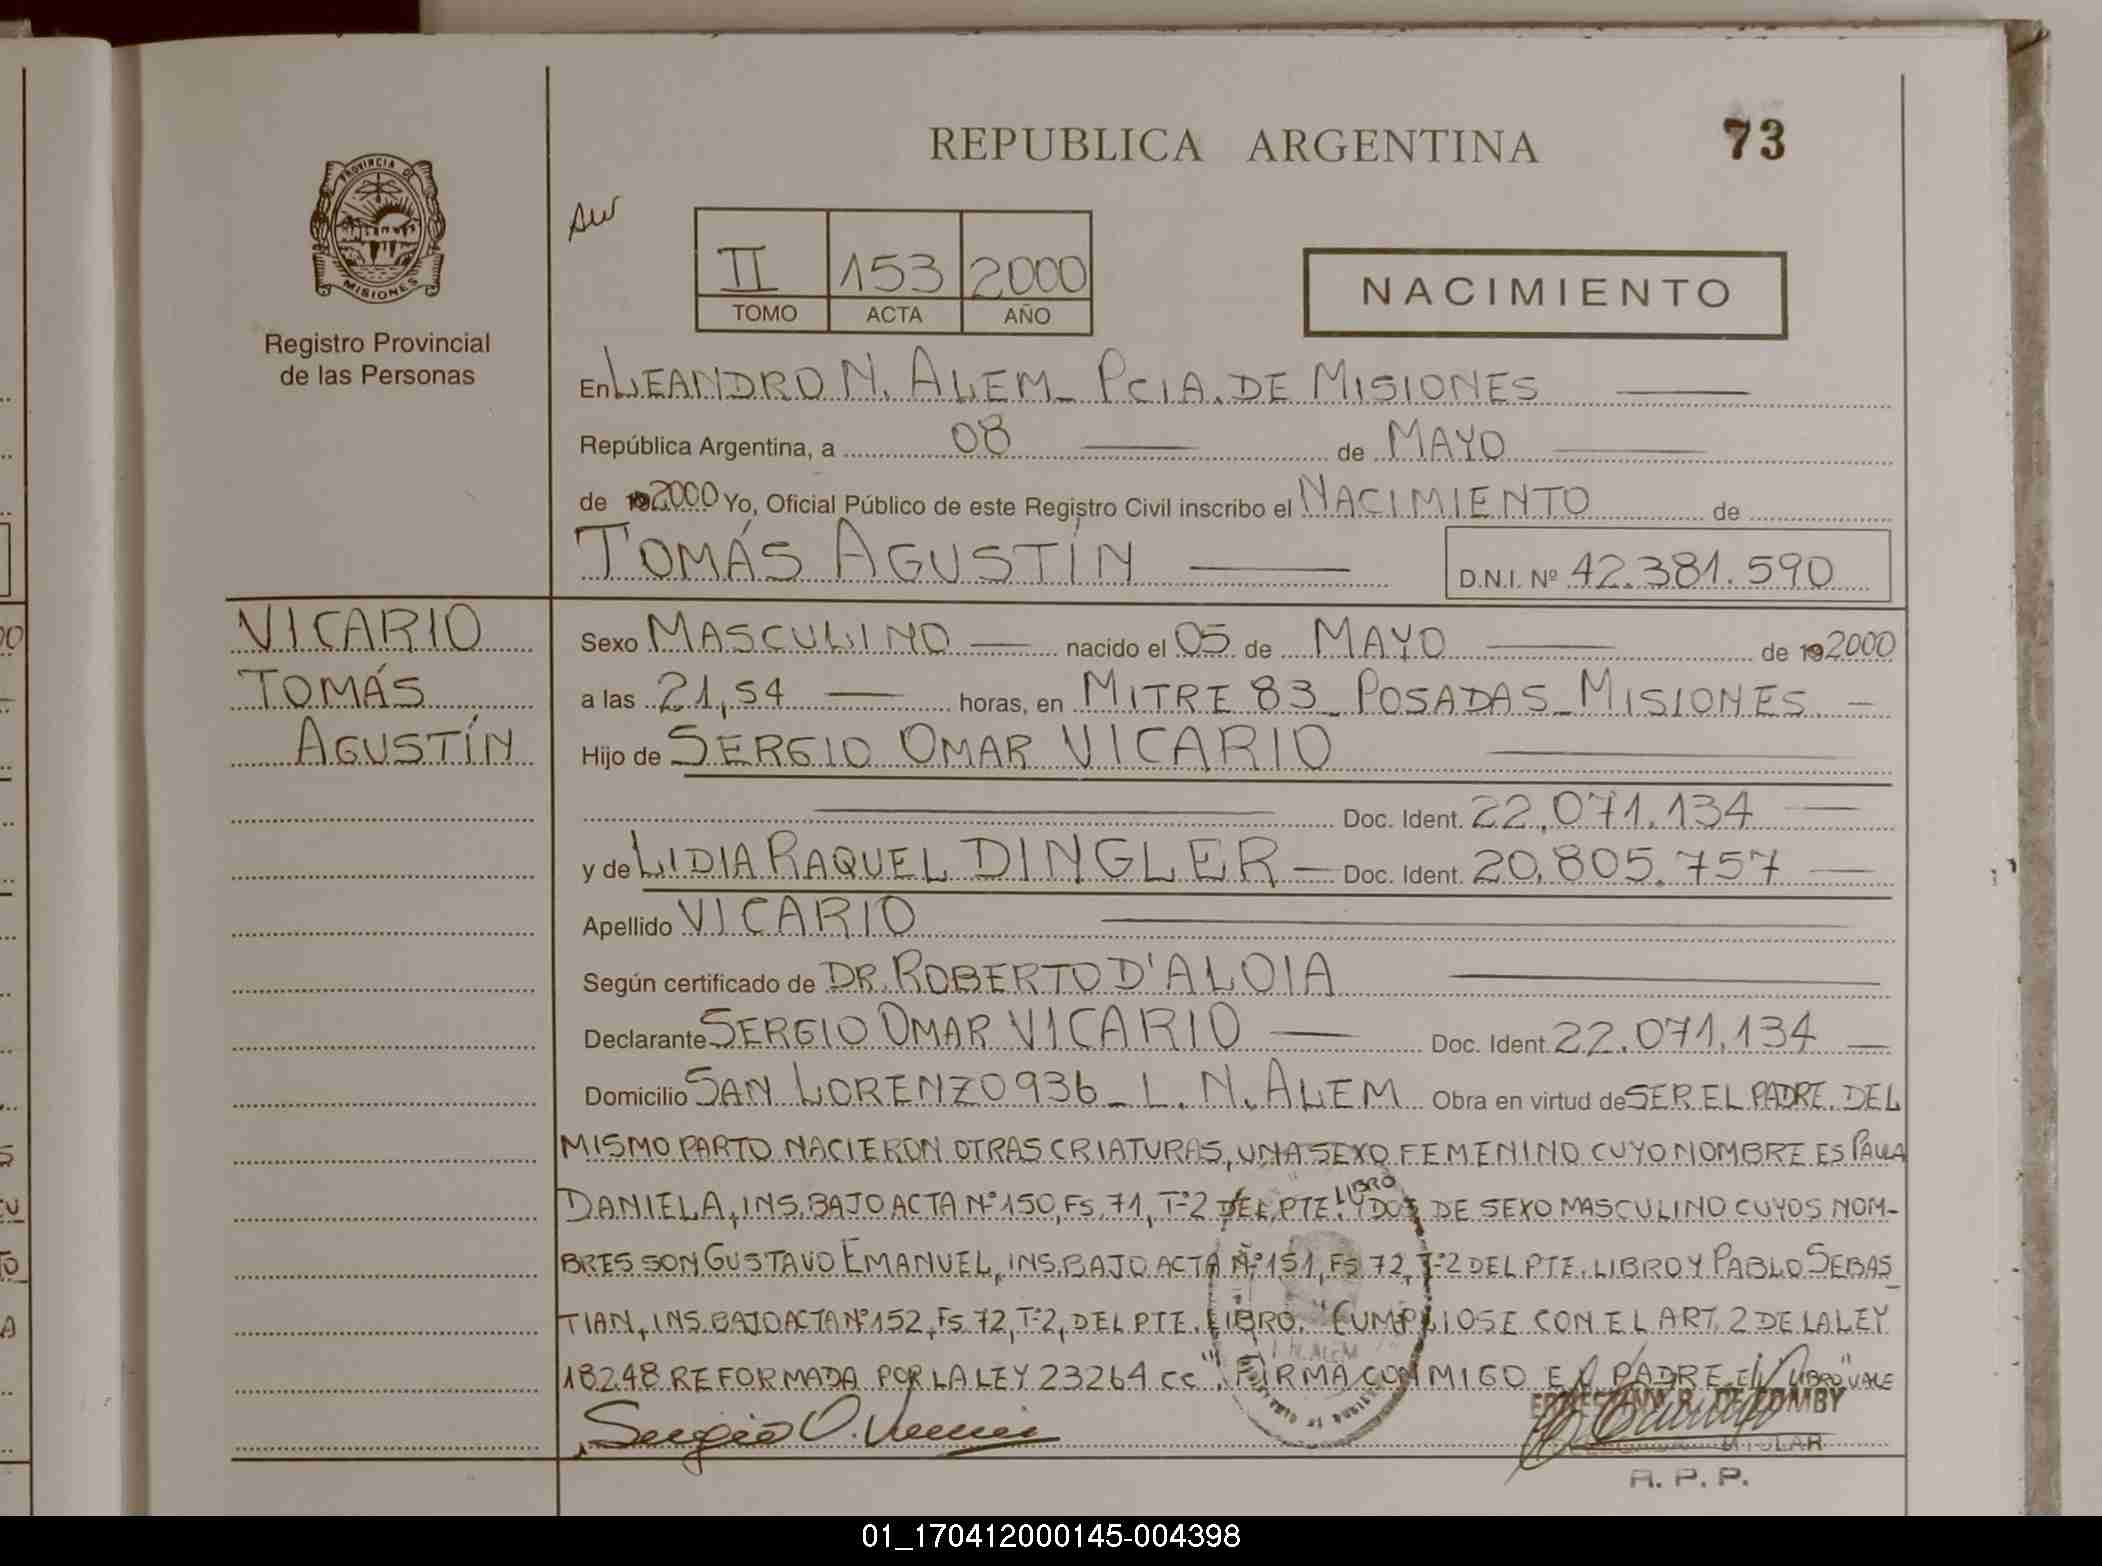 REPUBLICA ARGENTINA
73
PROVINCIA DE
MISIONES
Registro Provincial
de las Personas
II 153 2000
TOMO ACTA AÑO
NACIMIENTO
En LEANDRO N. ALEM_ PCIA. DE MISIONES
República Argentina, a 08 de MAYO
de 192000 Yo, Oficial Público de este Registro Civil inscribo el NACIMIENTO de
TOMÁS AGUSTÍN D.N.I. Nº 42.381.590
VICARIO
TOMÁS
AGUSTÍN
Sexo MASCULINO nacido el 05 de MAYO de 192000
a las 21,54 horas, en MITRE 83_ POSADAS_MISIONES
Hijo de SERGIO OMAR VICARIO
Doc. Ident. 22.071.134
y de LIDIA RAQUEL DINGLER Doc. Ident. 20.805.757
Apellido VICARIO
Según certificado de DR. ROBERTO D'ALOIA
Declarante SERGIO OMAR VICARIO Doc. Ident. 22.071.134
Domicilio SAN LORENZO 936_ L. N. ALEM Obra en virtud de SER EL PADRE. DEL
MISMO PARTO NACIERON OTRAS CRIATURAS, UNA SEXO FEMENINO CUYO NOMBRE ES PAULA
DANIELA, INS. BAJO ACTA Nº 150, FS. 71, Tº 2 DEL PTE. LIBRO Y DOS DE SEXO MASCULINO CUYOS NOM-
BRES SON GUSTAVO EMANUEL, INS. BAJO ACTA Nº 151, FS 72, Tº 2 DEL PTE. LIBRO Y PABLO SEBAS_
TIAN, INS. BAJO ACTA Nº 152, FS. 72, Tº 2, DEL PTE. LIBRO. "CUMPLIOSE CON EL ART. 2 DE LA LEY
18248 REFORMADA POR LA LEY 23264 CC". FIRMA CONMIGO EL PADRE. E/L "LIBRO" VALE
Sergio O. Vicario
R. DE ROMBY
TITULAR
A. P. P.
01_170412000145-004398